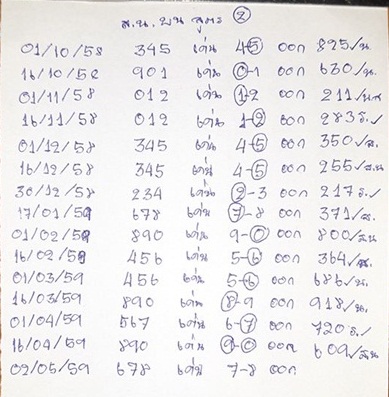 ส.น. บน สูตร 2
01/10/58 345 เด่น 4-5 ออก 895/น.
16/10/58 901 เด่น 0-1 ออก 630/น.
01/11/58 012 เด่น 1-2 ออก 211/
16/11/58 012 เด่น 1-2 ออก 283
01/12/58 345 เด่น 4-5 ออก 350/ส.
16/12/58 345 เด่น 4-5 ออก 255/ส.น
30/12/58 234 เด่น 2-3 ออก 217
17/01/59 678 เด่น 7-8 ออก 371/ส.
01/02/59 890 เด่น 9-0 ออก 800/สน
16/02/59 456 เด่น 5-6 ออก 364/ส.
01/03/59 456 เด่น 5-6 ออก 686/น.
16/03/59 890 เด่น 8-9 ออก 918/น.
01/04/59 567 เด่น 6-7 ออก 720
16/04/59 890 เด่น 9-0 ออก 609/สน
02/05/59 678 เด่น 7-8 ออก